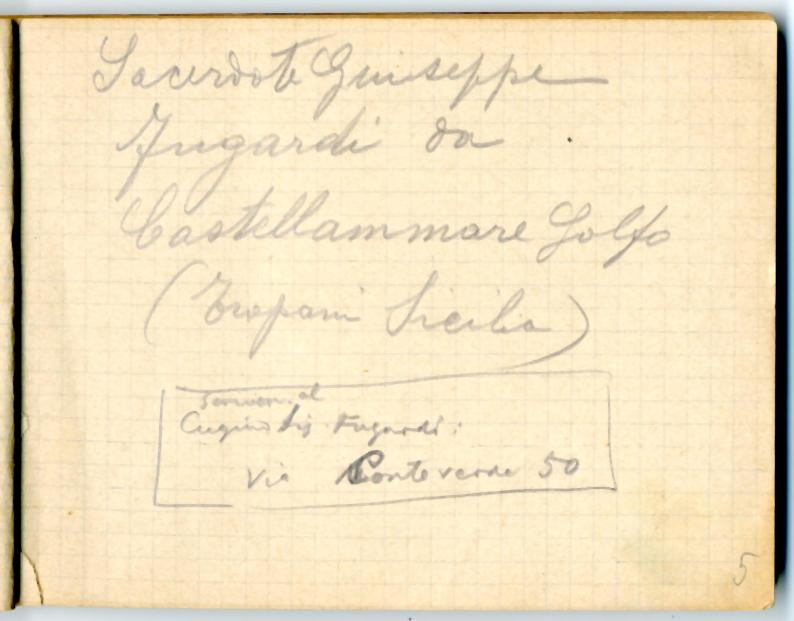 Sacerdote Giuseppe
Fugardi da
Castellammare Golfo
(Trapani Sicilia)
al
Cugino Sig. Fugardi:
Via Ponteverde 50
5